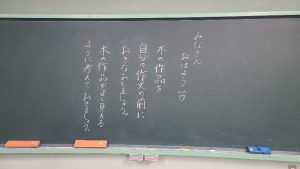 みなさん
おはよう
木の作品を
自分の作文の前に
おきなおしましょう。
木の作品がよく見える
ように考えておきましょう。